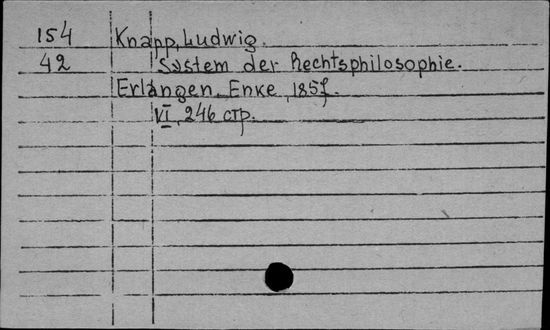 154 Knapp, Ludwig.
42 System der Rechtsphilosophie.
Erlangen, Enke, 1857.
VI, 246 стр.